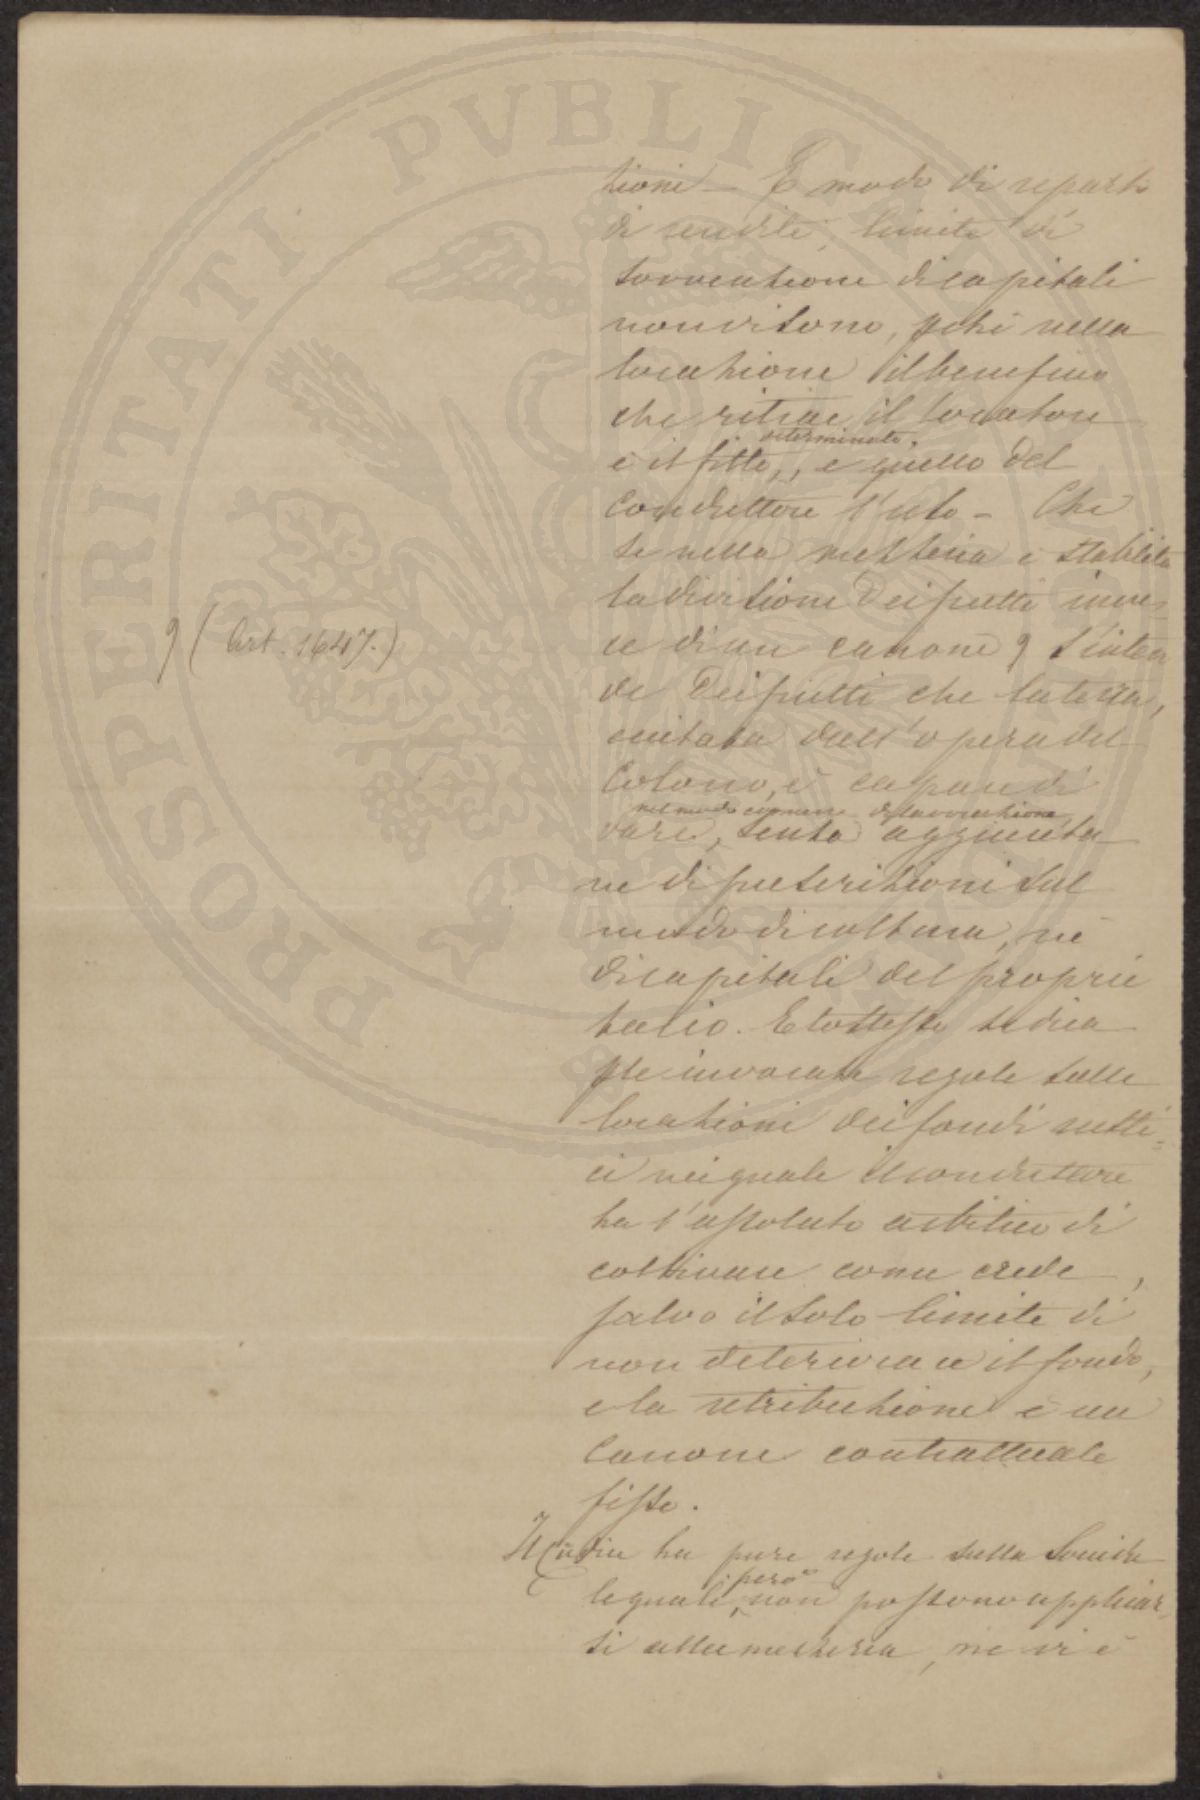 zioni – E modo di reparto
di rendite, limite di
sovvenzione di capitali
non vi sono, pchè nella
locazione il benefizio
che ritrae il locatore
determinato.
è il fitto, e quello del
conduttore l'uso – Che
se nella mezzeria è stabilita
la divisione dei frutti inve-
ce di un canone 9 s'inten
9 (Art. 1647.)
de dei frutti che la terra,
aiutata dall'opera del
Colono, è capace di
nel modo comune di lavorazione
dare, senza aggiunta
nè di prescrizioni sul
modo di coltura, nè
di capitali del proprie
tario. E lo stesso si dica
ple invocate regole sulle
locazioni dei fondi rusti-
ci nei quale il conduttore
ha l'assoluto arbitrio di
coltivare come crede,
salvo il solo limite di
non deteriorare il fondo,
e la retribuzione è un
canone contrattuale
fisso.
Il Codice ha pure regole sulla Soccida
però
le quali, non possono applicar-
si alla mezzeria, nè vi è
PROSPERITATI PVBLICAE